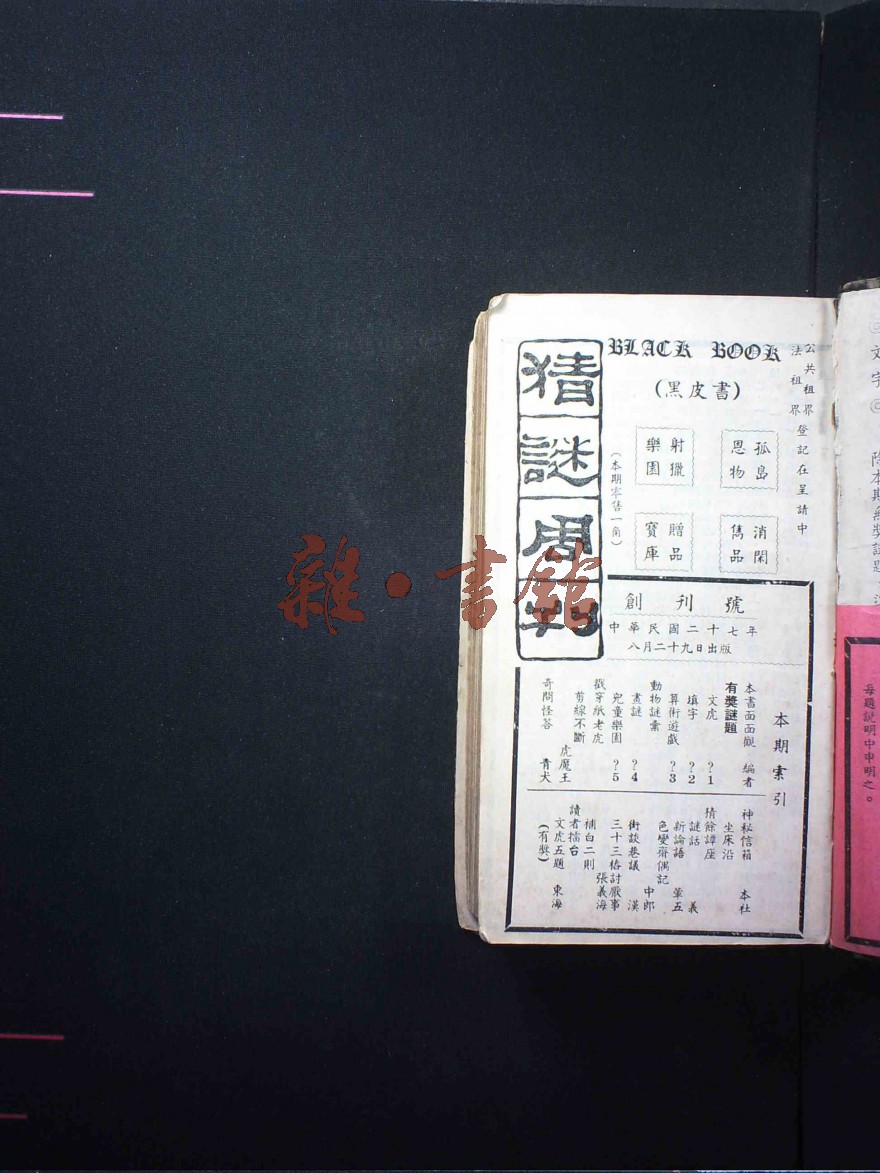 BLACK BOOK
(黑皮書)
公共租界
法租界
登記在呈請中
孤島
恩物
射獵
樂園
消閑
雋品
贈品
寶庫
(本期零售一角)
猜謎周刊
創刊號
中華民國二十七年
八月二十九日出版
本期索引
本書面面觀 編者
有獎謎題
文虎 ?1
填字 ?2
算術遊戲 ?3
動物謎彙
畫謎 ?4
兒童樂園 ?5
戳穿紙老虎
剪線不斷 虎魔王
奇問怪答 青犬
神秘信箱 本社
坐床沿
猜餘譚座
謎話 義
新論語 葷五
色變齋偶記 中郎
街談巷議 漢
三十三樁討厭事 張義海
補白二則
讀者擂台
文虎五題 東海
(有獎)
雜·書館
文字
除本期無獎試題
每題說明中申明之。